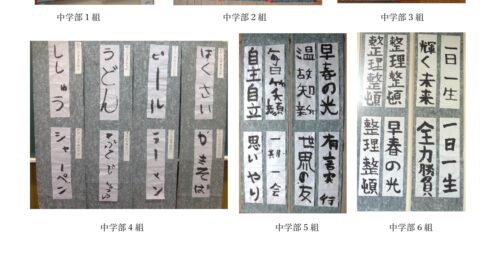 中学部1組
中学部2組
中学部3組
はくさい
ビール
うどん
ししゅう
かきそば
ラーメン
シャーペン
中学部4組
早春の光
温故知新
毎日笑顔
自主自立
有言実行
世界の友
一期一会
思いやり
中学部5組
一日一生
輝く未来
整理整頓
整理整頓
一日一生
全力勝負
早春の光
整理整頓
中学部6組